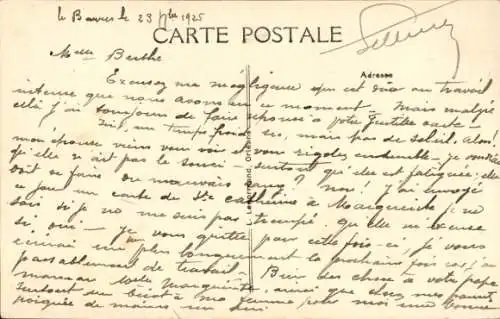 le 23 1925
CARTE POSTALE
Melle Berthe
Adresse
Excusez ma negligence qui est due au travail
intense que nous avons en ce moment - Mais malgré
celà j'ai toujours de faire réponse à votre gentille carte -
Ici, un temps froid sec, mais pas de soleil. Alors!
mon épouse viens vous voir et vous rigolez ensemble - je voudrais
qu'elle n'ait pas le souci - surtout qu'elle est fatiguée; elle
doit se faire du mauvais sang? non! J'ai envoyé
ce jour une carte de Ste Catherine à Marguerite; ne
sais si je ne me suis pas trompé qu'elle m'excuse
si oui - Je vous quitte pour cette fois-ci, je vous
écrirai un plus longuement la prochaine fois car j'ai
passablement de travail - Bien des choses à votre papa
maman Marguerite, ainsi que chez mes parents,
surtout un bécot à ma femme pour moi une bonne
poignée de mains